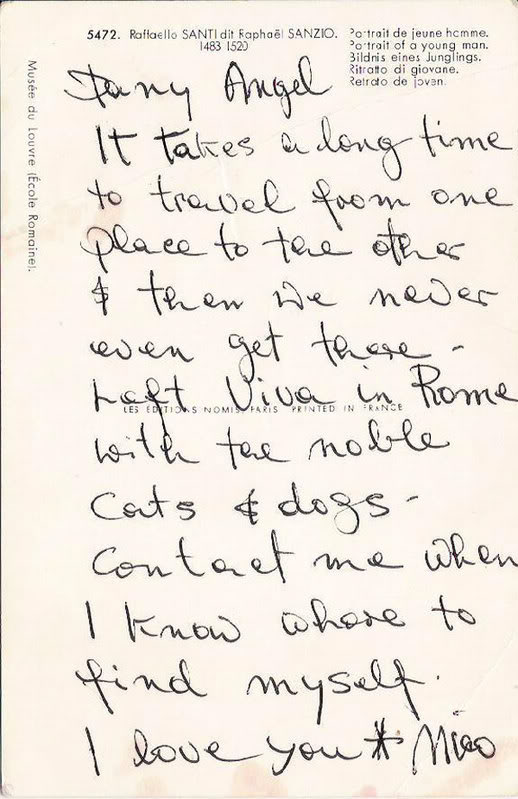 5472. Raffaello SANTI dit Raphaël SANZIO.
1483 1520
Portrait de jeune homme.
Portrait of a young man.
Bildnis eines Junglings.
Ritratto di giovane.
Retrato de joven.
Musée du Louvre (École Romaine).
Dany Angel
It takes a long time
to travel from one
place to the other
& then we never
even get there -
Left Viva in Rome
LES EDITIONS NOMIS PARIS PRINTED IN FRANCE
with the noble
Cats & dogs -
Contact me when
I know where to
find myself.
I love you * Nico